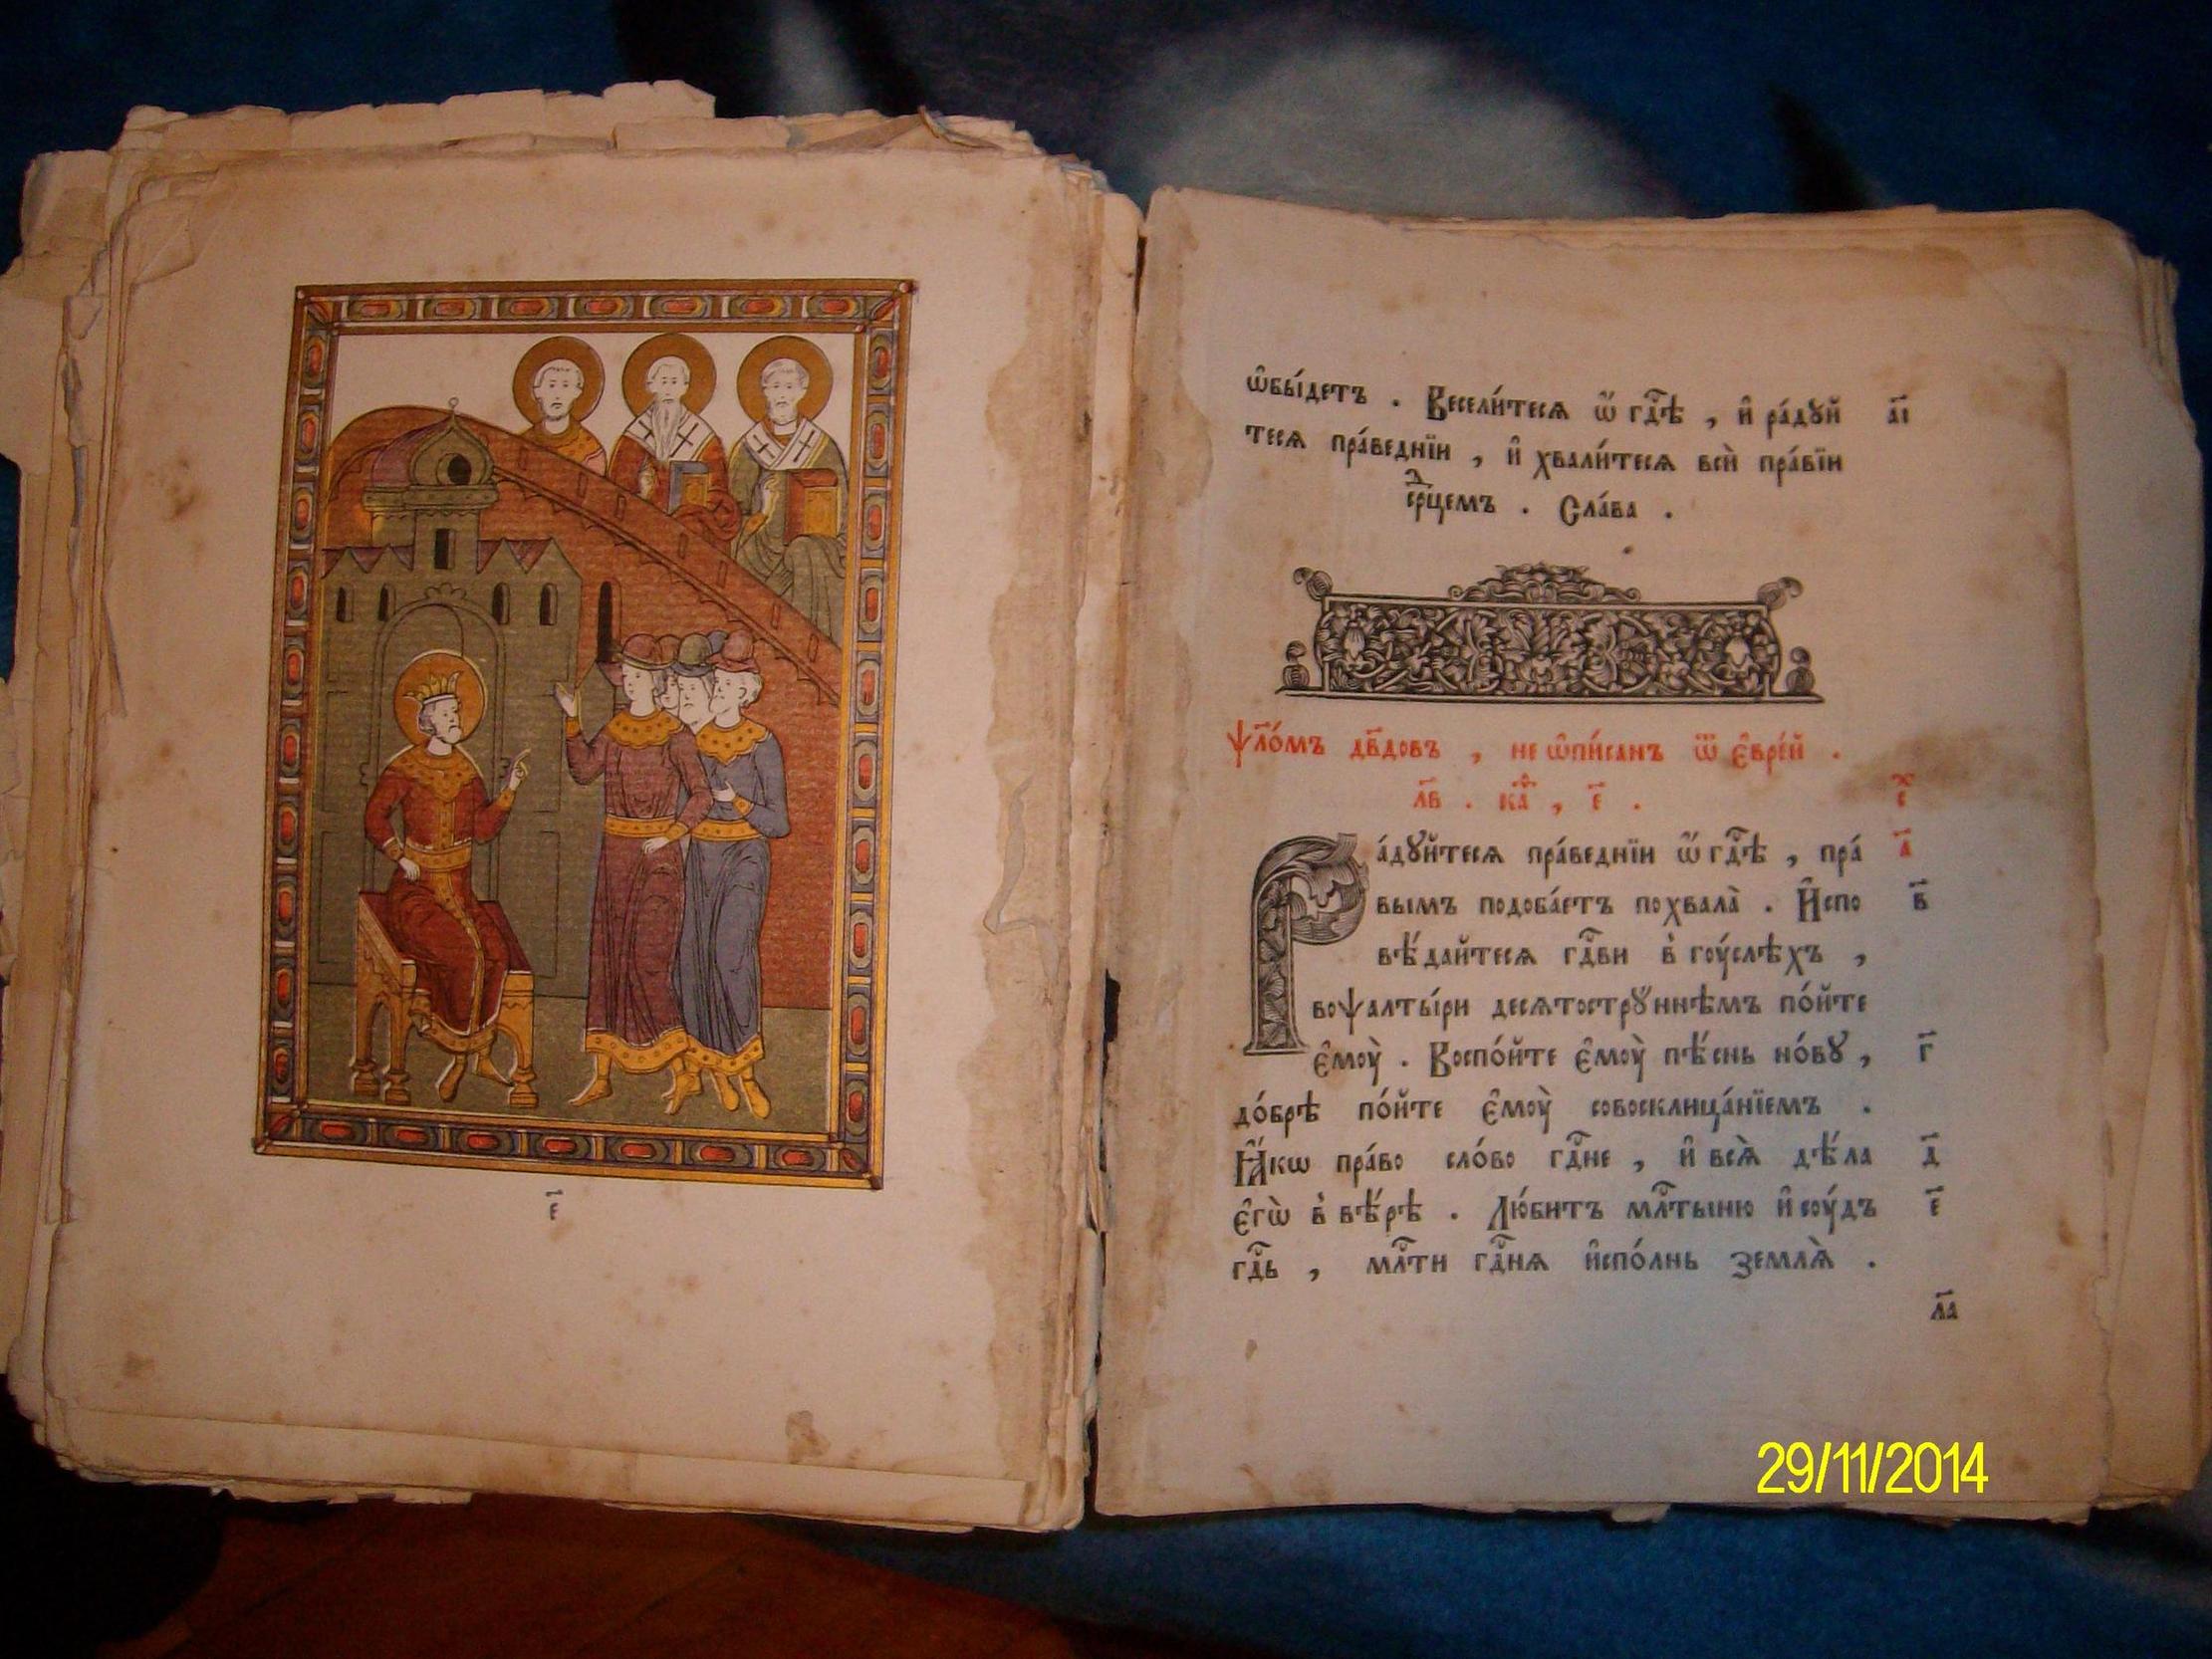 е҃
ѡ҆бы́детъ . Весели́теся ѡ҆ гдⷭ҇ѣ , и҆ ра́дꙋй а҃і
теся пра́веднїи , и҆ хвали́теся всѝ пра́вїи
срⷣцемъ . Сла́ва .
Ѱло́мъ дв҃довъ , не ѡ҆пи́санъ ѿ є҆вре́й .
л҃в . каⷴ҇ , е҃ .
Ра́дꙋйтеся пра́веднїи ѡ҆ гдⷭ҇ѣ , пра́ а҃
вымъ подоба́етъ похвала̀ . И҆спо в҃
вѣ́дайтеся гдⷭ҇ви в̾ гоу́слѣхъ ,
воѱалты́ри десѧтострꙋннѣмъ по́йте
є҆моу̀ . Воспо́йте є҆моу̀ пѣ́снь но́вꙋ , г҃
до́брѣ по́йте є҆моу̀ совосклица́нїемъ .
Ꙗ҆́кѡ пра́во сло́во гдⷭ҇не , и҆ всѧ̀ дѣ́ла д҃
є҆гѡ̀ в̾ вѣ́рѣ . Лю́битъ млⷭ҇тыню и҆ соу́дъ е҃
гдⷭ҇ь , млⷭ҇ти гдⷭ҇ня и҆спо́лнь землѧ̀ .
л҃а
29/11/2014